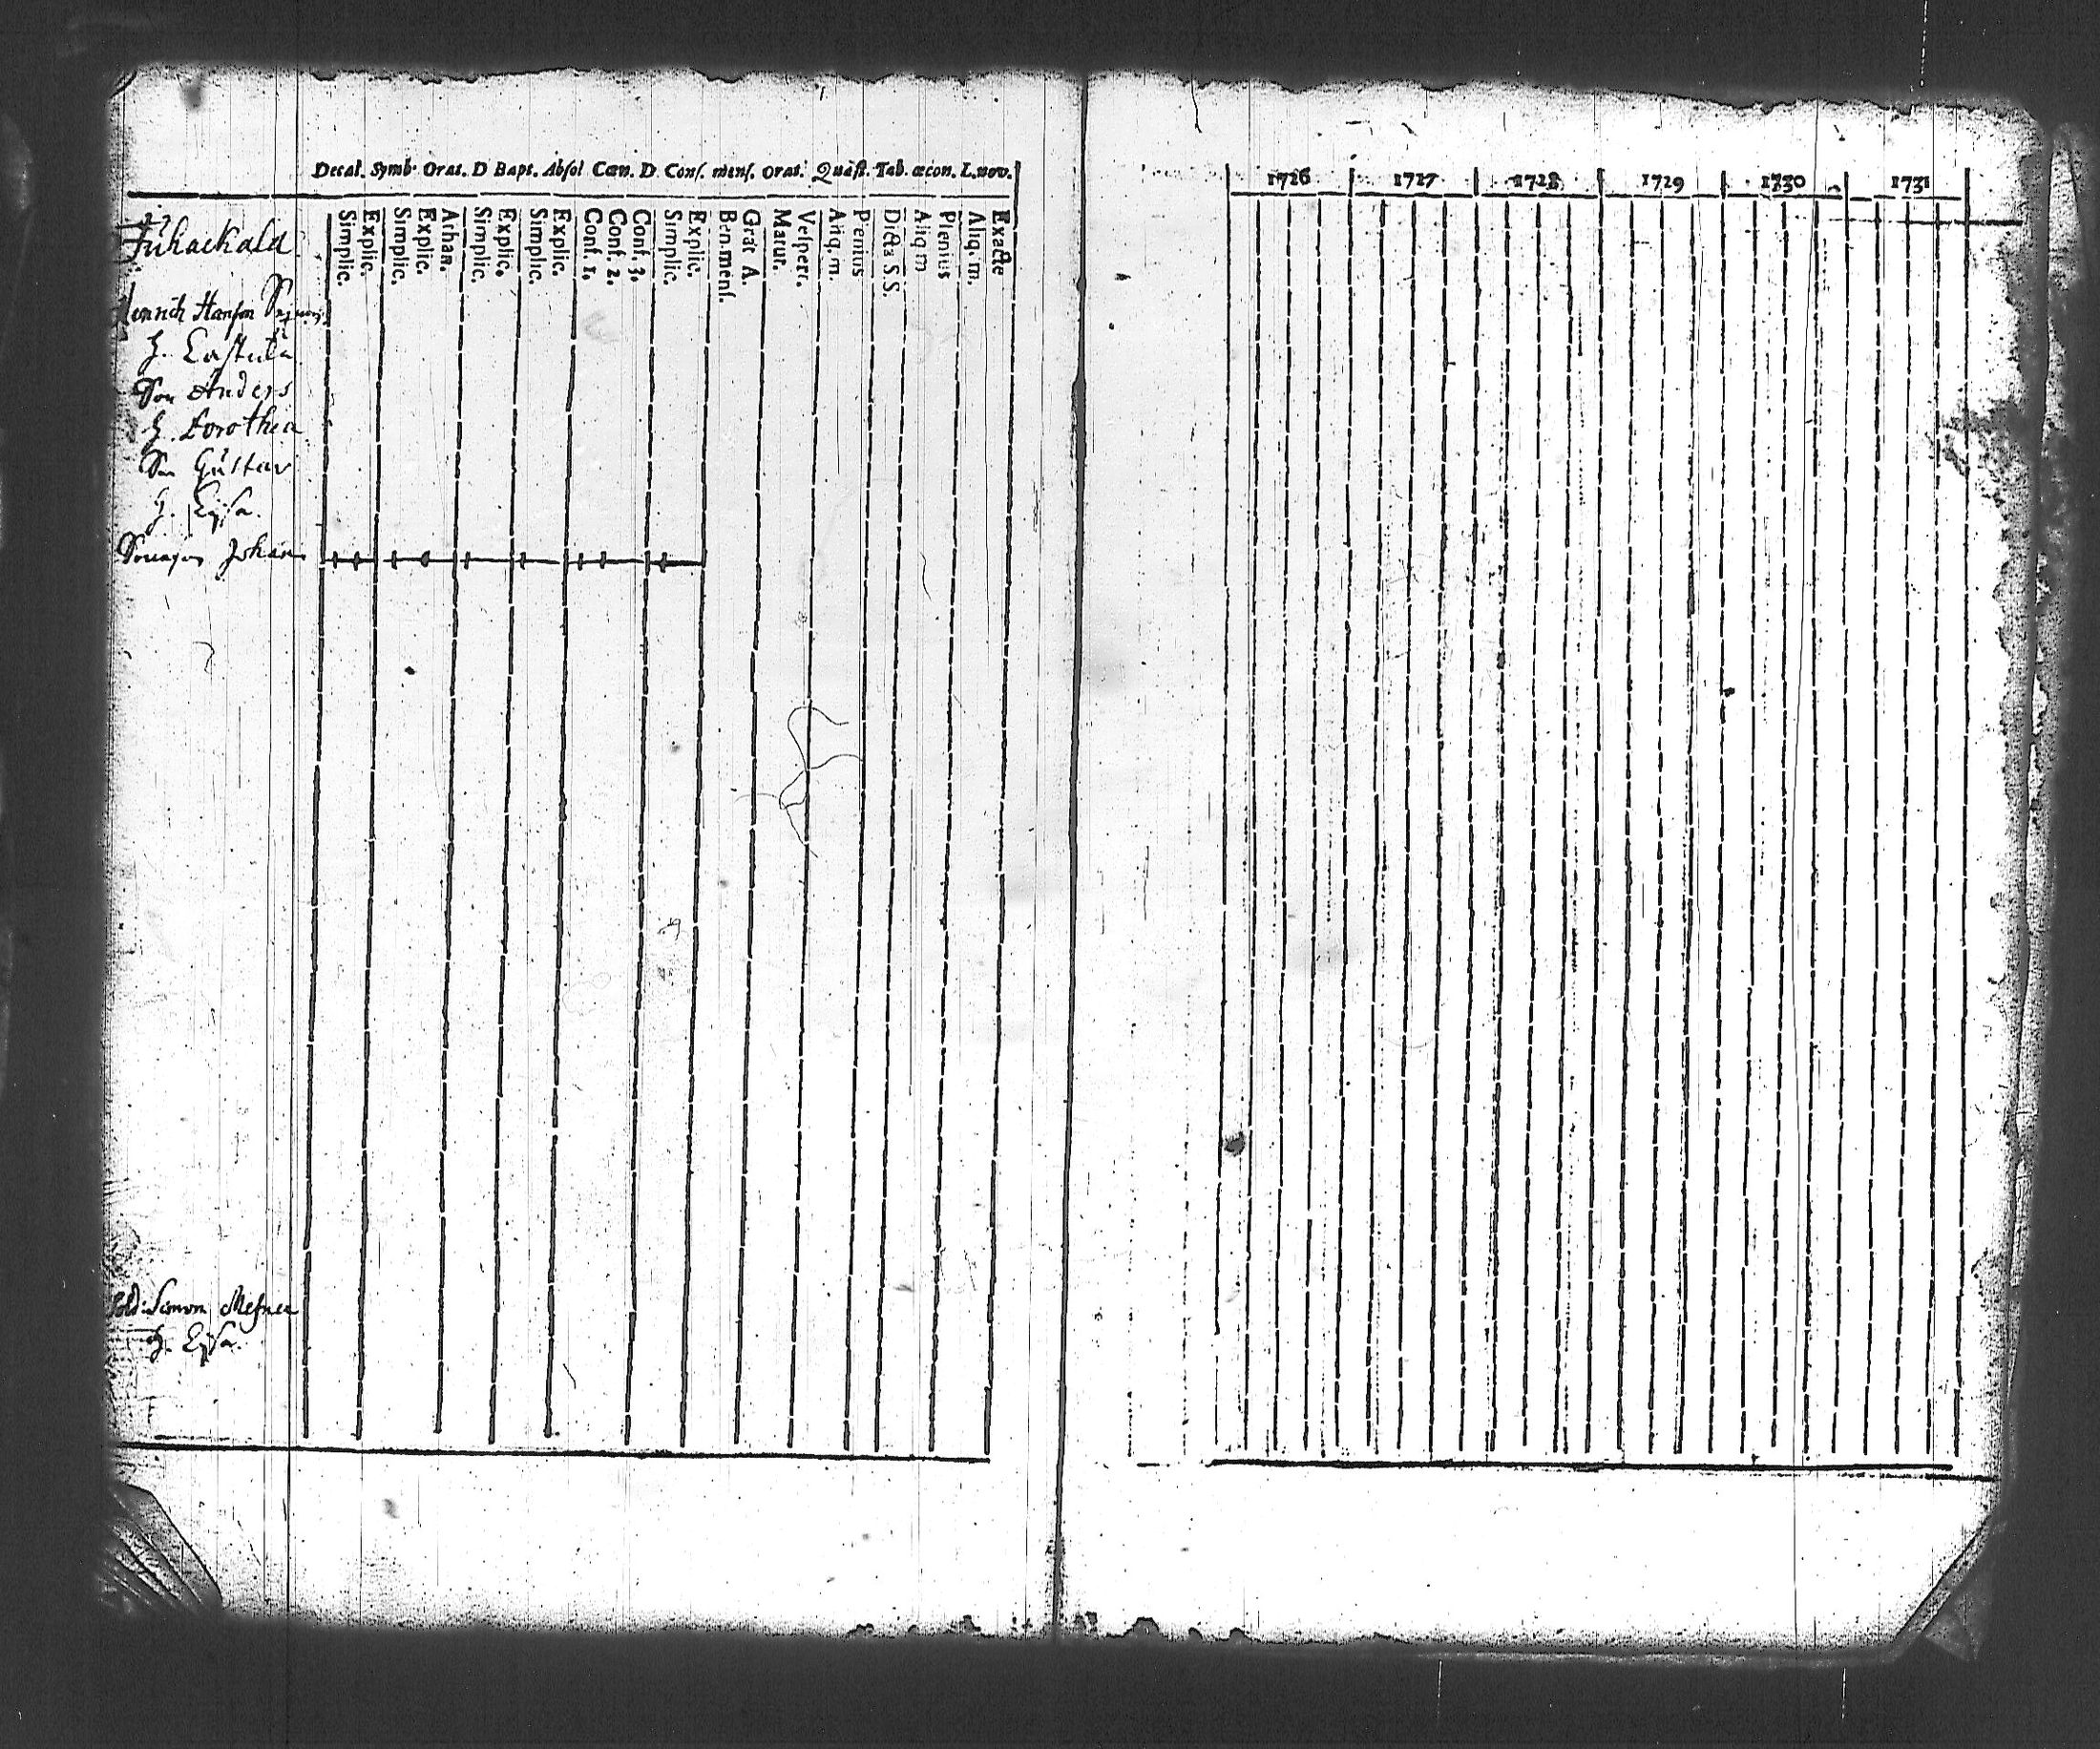 Decal. Symb. Orat. D Bapt. Absol Cœn. D. Conf. mens. Orat. Quæst. Tab. œcon. L. nov.
Simplic. Explic. Simplic. Explic. Athan. Simplic. Explic. Simplic. Explic. Conf. 1. Conf. 2. Conf. 3. Simplic. Explic. Ben. mens. Grat A. Matut. Vespert. Aliq. m. Plenius Dicta S.S. Aliq. m Plenius Aliq. m. Exacte
Henrich Hansson
H.
Son Anders
H. Dorothea
Son Gustav
H. Lijsa.
Johan
Sold: Simon
H. Lijsa.
1726 1727 1728 1729 1730 1731